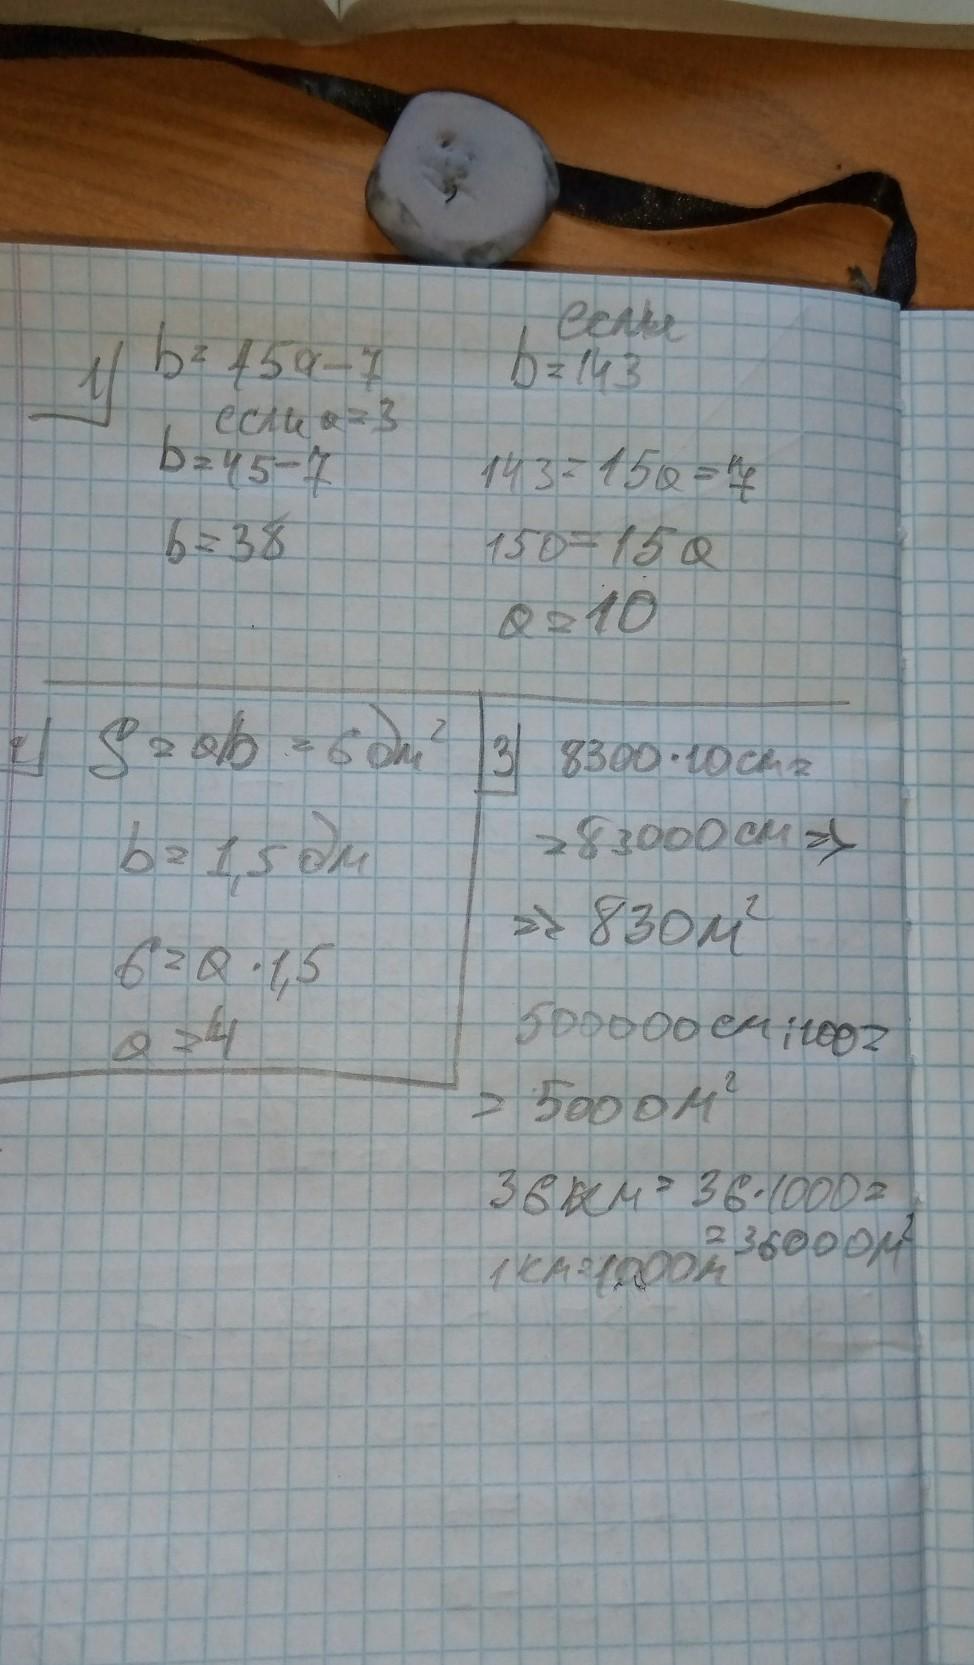 1)
b=15a-7
если a=3
b=45-7
b=38
если
b=143
143=15a=7
150=15a
a=10
2)
S=ab=6дм²
b=1,5дм
6=a·1,5
a=4
3)
8300·10см=
=83000см=>
=>=830м²
500000см:100=
=5000м²
36км=36·1000=
=36000м²
1км=1000м